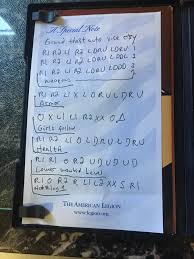 A Special Note
Grand theft auto vice city
R1 R2 L1 R2 L D R U L D R U 1
R1 R2 L1 R2 L D R U L D D L 2
R1 R2 L1 R2 L D R U L D D D 3
weapons
R1 R2 L1 X L D R U L D R U
Armor
O X L1 L1 R2 X X O △
Girls follow
R1 R2 L1 O L D R U L D R U
Health
R1 R1 O R2 U D U D U D
Lower wanted Level
R1 O R2 R L1 L2 X X S R1
THE AMERICAN LEGION
www.legion.org